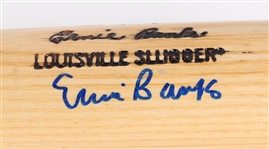 Ernie Banks
LOUISVILLE SLUGGER
Ernie Banks